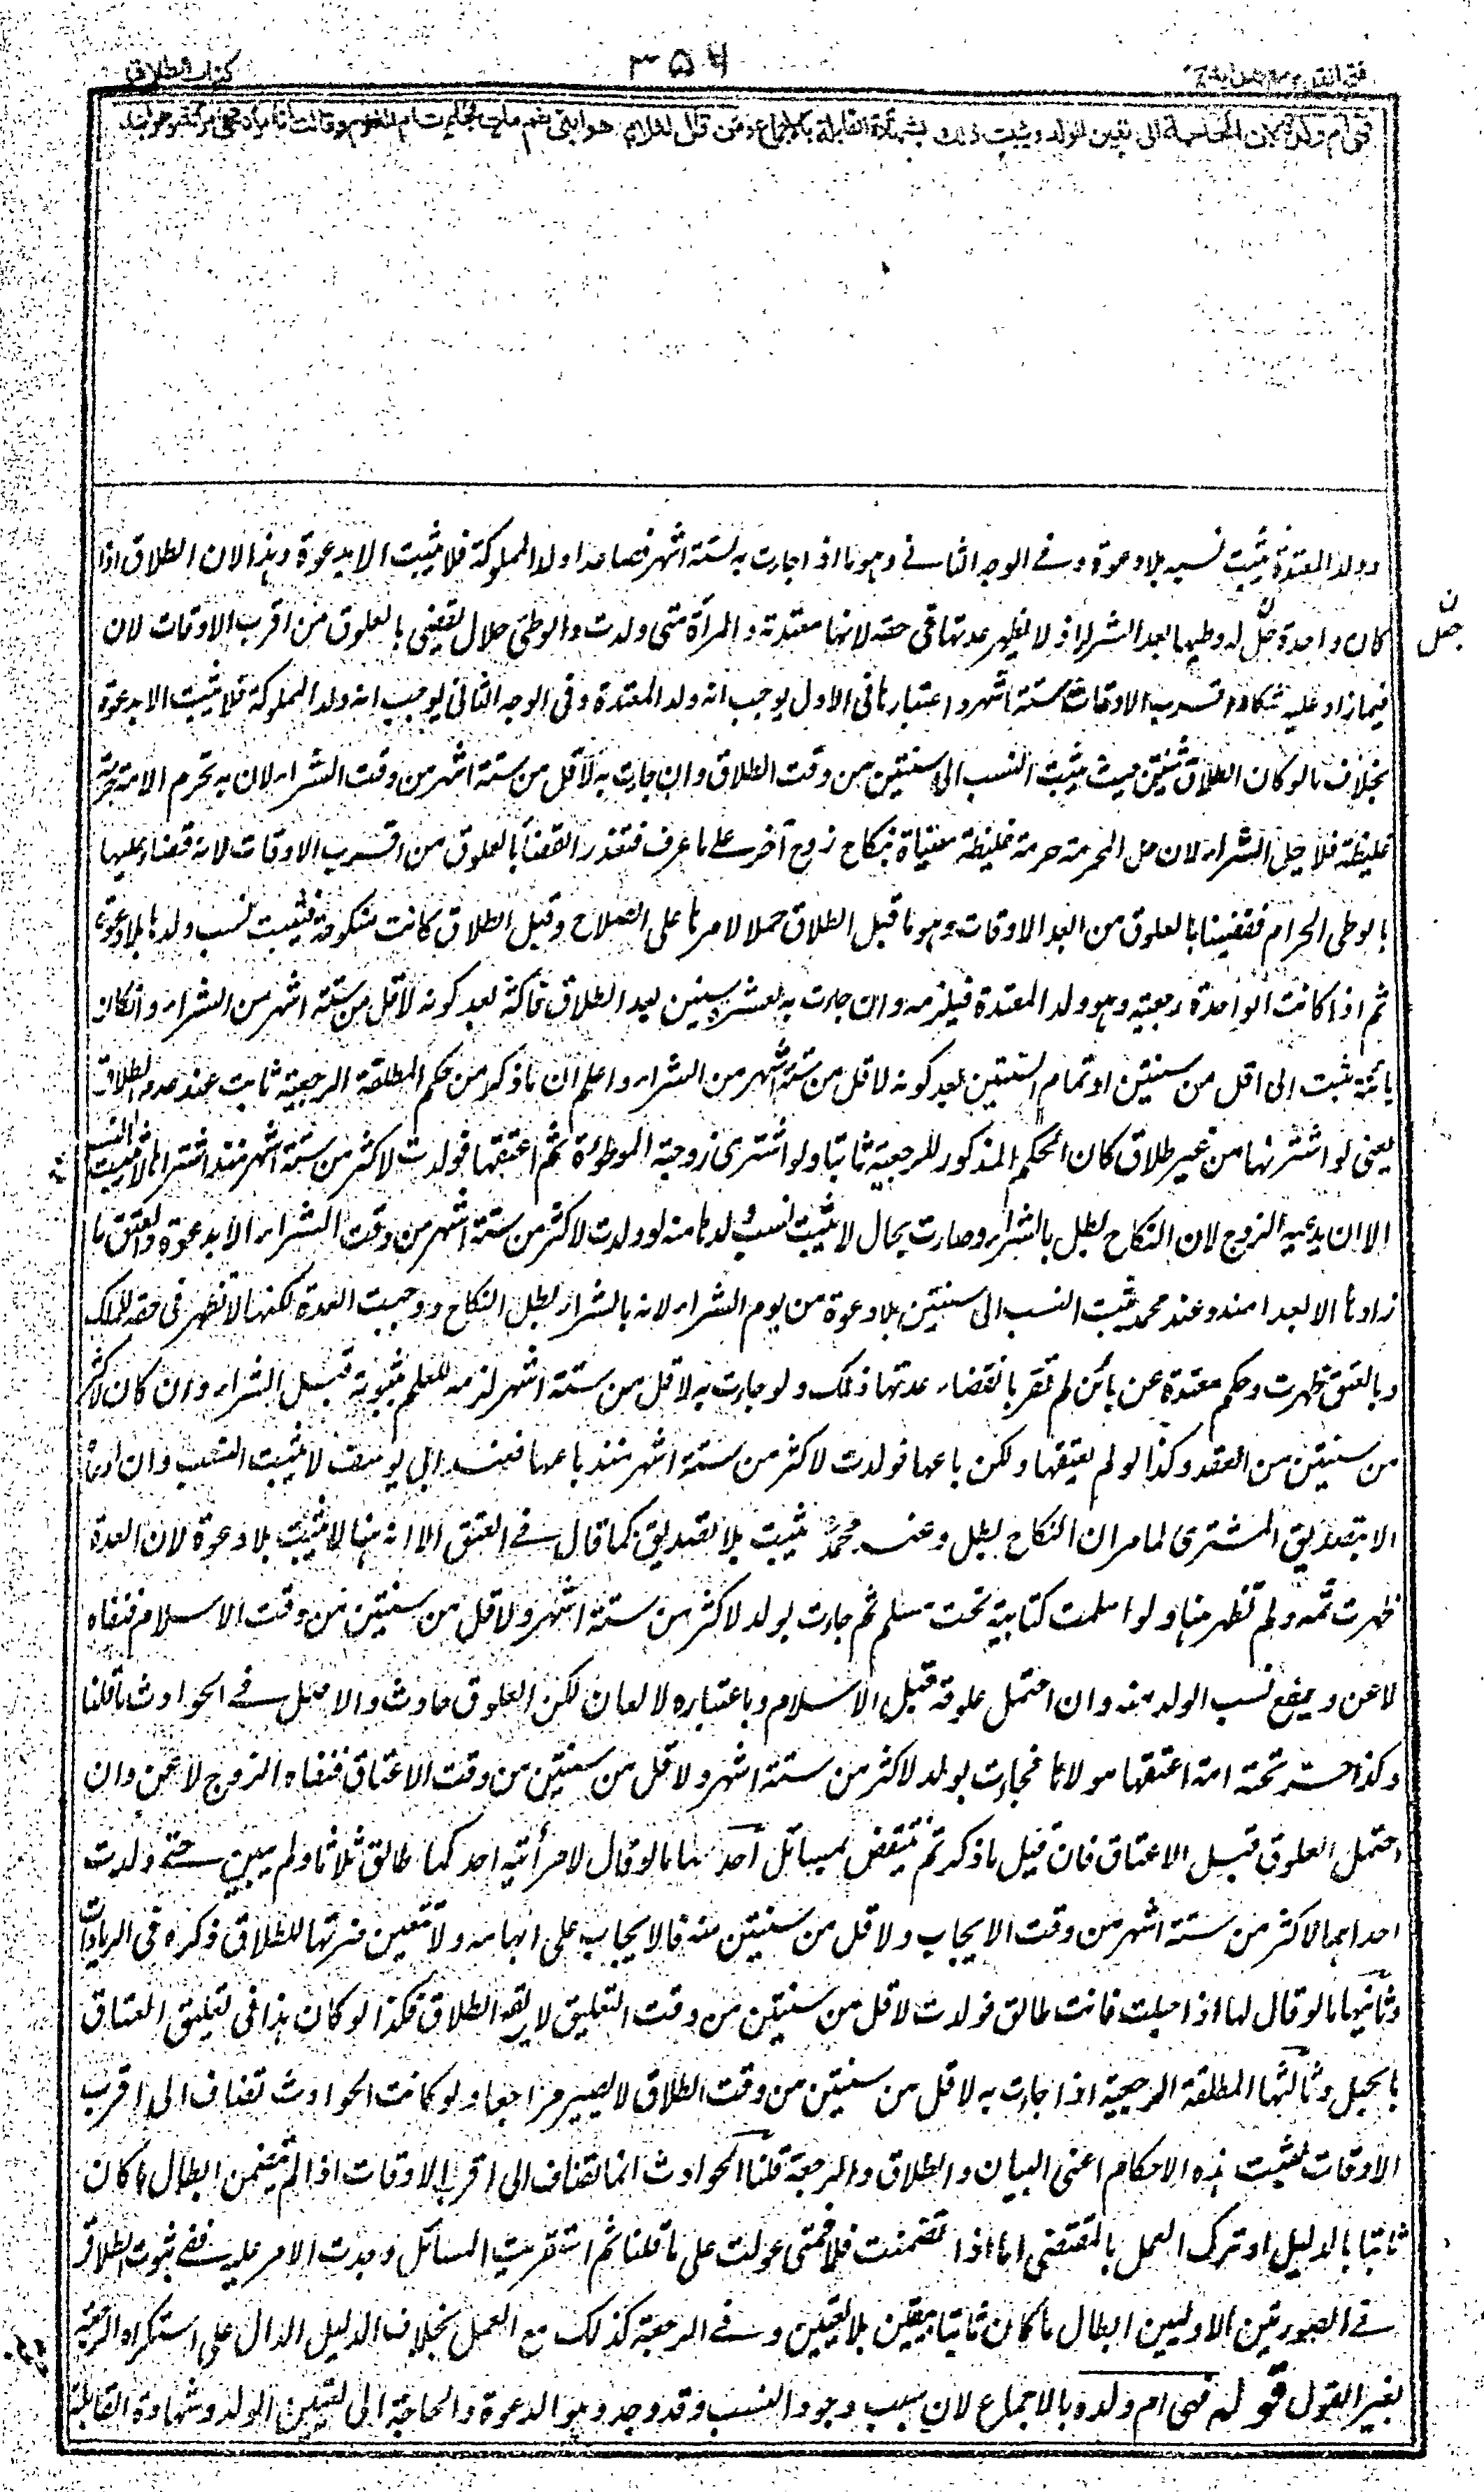 كتاب الطلاق
٣٥٦
فتح القدير مع هداية ج ٢
فهي ام ولده لان الحاجة الى تعيين الولد ويثبت ذلك بشهادة القابلة بالاجماع ومن قال لغلام هو ابني ثم مات فجاءت ام الغلام وقالت انا امرأته فهي امرأته وهو ابنه
وولد المعتدة يثبت نسبه بلا دعوة وفي الوجه الثاني وهو ما اذا جاءت به لستة اشهر فصاعدا ولد المملوكة فلا يثبت الا بدعوة وهذا لان الطلاق اذا
كان واحدة حل له وطيها بعد الشراء اذ لا يظهر عدتها في حقه لانها معتدته والمرأة متى ولدت والوطئ حلال يقضى بالعلوق من اقرب الاوقات لان
ن
حل
فيما زاد عليه شكا واقرب الاوقات ستة اشهر واعتبارها في الاول يوجب انه ولد المعتدة وفي الوجه الثاني يوجب انه ولد المملوكة فلا يثبت الا بدعوة
بخلاف ما لو كان الطلاق ثنتين حيث يثبت النسب الى سنتين من وقت الطلاق وان جاءت به لاقل من ستة اشهر من وقت الشراء لان به تحرم الامة حرمة
غليظة فلا حل بالشراء لان حل المحرمة حرمة غليظة مغياة بنكاح زوج آخر على ما عرف فتعذر القضأ بالعلوق من اقرب الاوقات لانه قضاء عليها
بالوطى الحرام فقضينا بالعلوق من ابعد الاوقات وهو ما قبل الطلاق حملا لامرها على الصلاح وقبل الطلاق كانت منكوحة فيثبت نسب ولدها بلا دعوة
ثم اذا كانت الواحدة رجعية وهو ولد المعتدة فيلزمه وان جاءت به لعشر سنين بعد الطلاق فاكثر بعد كونه لاقل من ستة اشهر من الشراء وان كان
بائنة يثبت الى اقل من سنتين او تمام السنتين بعد كونه لاقل من ستة اشهر من الشراء واعلم ان ما ذكر من حكم المطلقة الرجعية ثابت عند عدم الطلاق
يعنى لو اشتراها من غير طلاق كان الحكم المذكور للرجعية ثابتا ولو اشترى زوجته الموطوئة ثم اعتقها فولدت لاكثر من ستة اشهر منذ اشتراها لا يثبت النسب
الا ان يدعيه الزوج لان النكاح بطل بالشراء وصارت بحال لا يثبت نسب ولدها منه لو ولدت لاكثر من ستة اشهر من وقت الشراء الا بدعوة والعتق ما
زادها الا بعدا منه وعند محمد يثبت النسب الى سنتين بلا دعوة من يوم الشراء لانه بالشراء بطل النكاح ووجبت العدة لكنها لا تظهر في حقه للملك
وبالعتق ظهرت وحكم معتدة عن بائن لم تقر بانقضاء عدتها ذلك ولو جاءت به لاقل من ستة اشهر لزمه للعلم بثبوته قبل الشراء وان كان لاكثر
من سنتين من العقد وكذا لو لم يعتقها ولكن باعها فولدت لاكثر من ستة اشهر منذ باعها فعند ابي يوسف لا يثبت النسب وان ادعاه
الا بتصديق المشترى لما مر ان النكاح بطل وعند محمد يثبت بلا تصديق كما قال في العتق الا انه هنا لا يثبت بلا دعوة لان العدة
ظهرت ثمه ولم تظهر هنا ولو اسلمت كتابية تحت مسلم ثم جاءت بولد لاكثر من ستة اشهر ولاقل من سنتين من وقت الاسلام فنفاه
لاعن ويقطع نسب الولد منه وان احتمل علوقه قبل الاسلام وباعتباره لا لعان لكن العلوق حادث والاصل في الحوادث ما قلنا
وكذا حر تحته امة اعتقها مولاها فجاءت بولد لاكثر من ستة اشهر ولاقل من سنتين من وقت الاعتاق فنفاه الزوج لاعن وان
احتمل العلوق قبل الاعتاق فان قيل ما ذكرتم ينتقض بمسائل احدها ما لو قال لامرأتيه احدكما طالق ثلاثا ولم يبين حتى ولدت
احداهما لاكثر من ستة اشهر من وقت الايجاب ولاقل من سنتين منه فالايجاب على ابهامه ولا تتعين ضرتها للطلاق ذكره في الزيادات
وثانيها ما لو قال لها اذا حبلت فانت طالق فولدت لاقل من سنتين من وقت التعليق لا يقع الطلاق فكذا لو كان هذا في تعليق العتاق
بالحبل وثالثها المطلقة الرجعية اذا جاءت به لاقل من سنتين من وقت الطلاق لا يصير مراجعا ولو كانت الحوادث تضاف الى اقرب
الاوقات لثبت هذه الاحكام اعنى البيان والطلاق والرجعة قلنا الحوادث انما تضاف الى اقرب الاوقات اذا لم يتضمن ابطال ما كان
ثابتا بالدليل او ترك العمل بالمقتضى اما اذا تضمنت فلا فمتى عولت على ما قلنا ثم استقريت المسائل وجدت الامر عليه ففي ثبوت الطلاق
في الصورتين الاوليين ابطال ما كان ثابتا بيقين بلا يقين وفي الرجعة كذلك مع العمل بخلاف الدليل الدال على استكراه الرجعة
بغير القول قوله فهى ام ولده بالاجماع لان سبب وجود النسب وقد وجد وهو الدعوة والحاجة الى تعيين الولد وشهادة القابلة